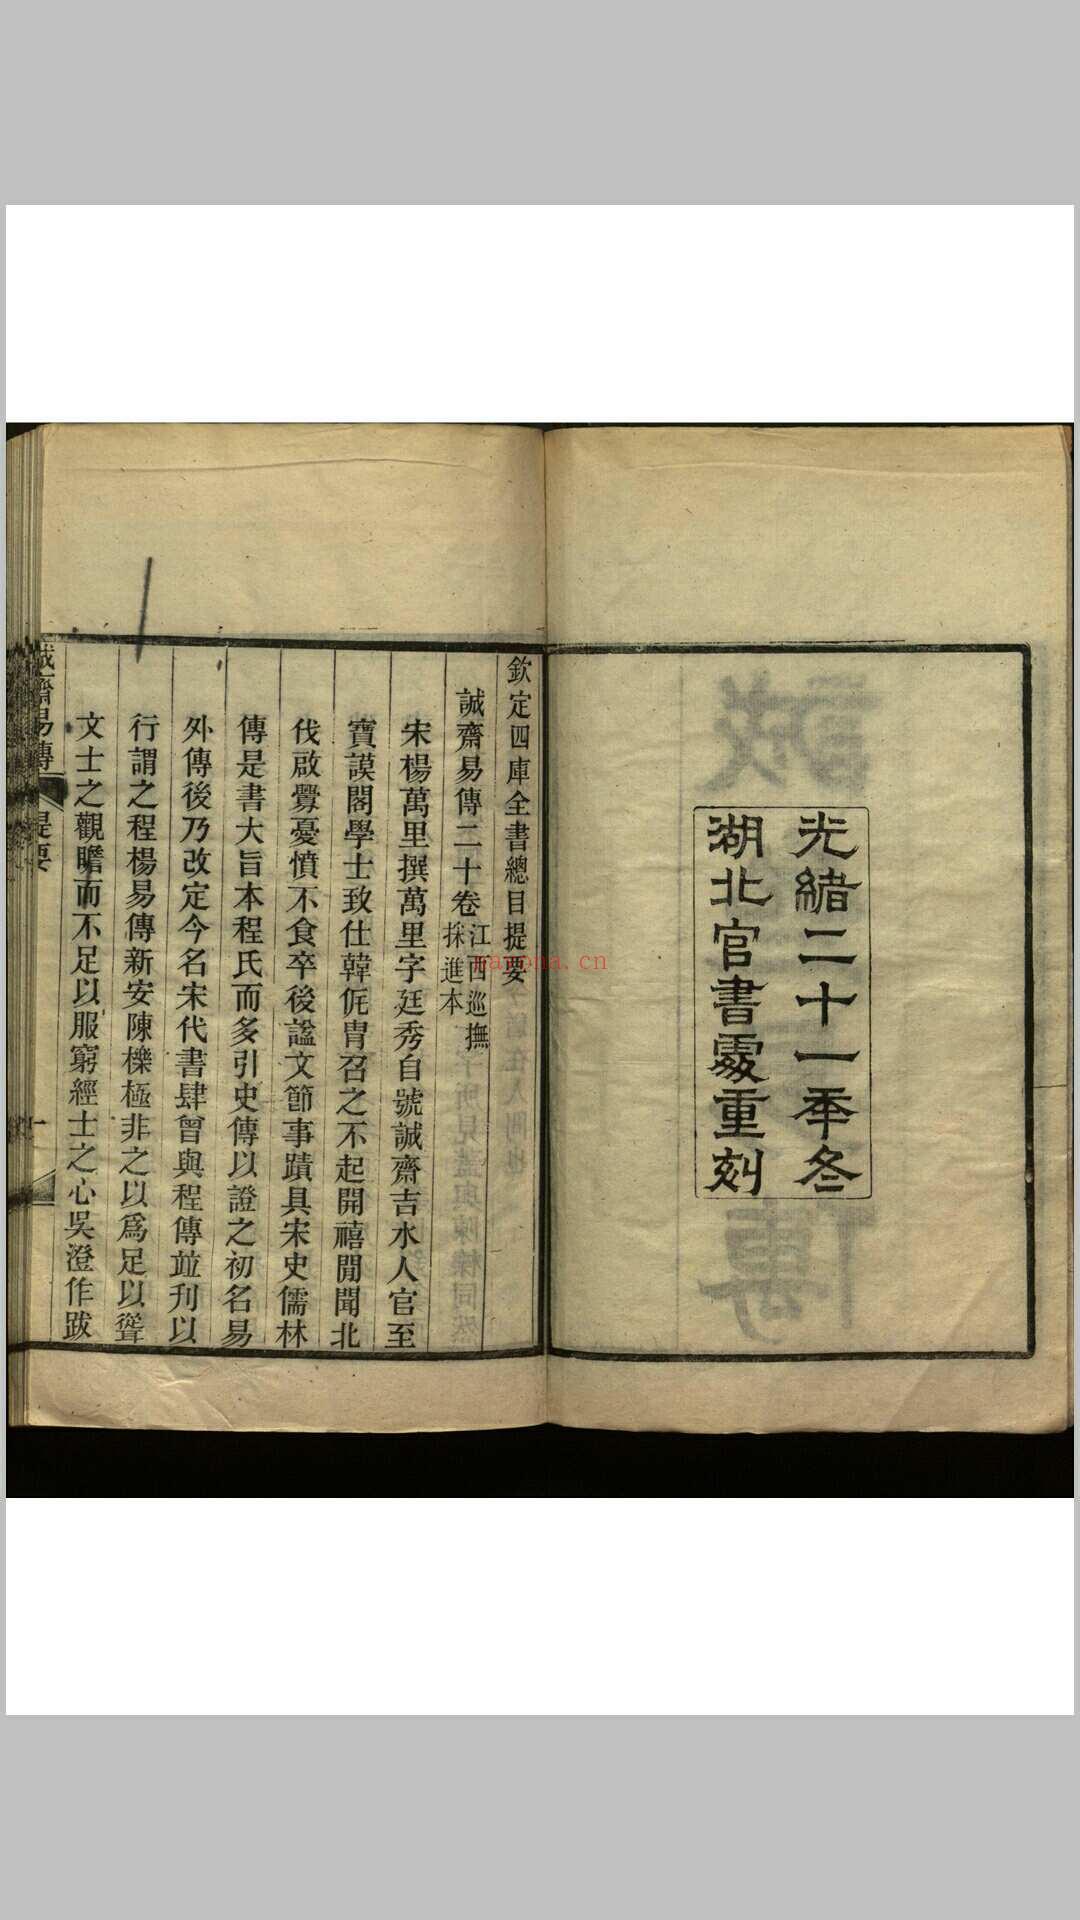 光緒二十一年冬
湖北官書處重刻
欽定四庫全書總目提要
誠齋易傳二十卷江西巡撫採進本
宋楊萬里撰萬里字廷秀自號誠齋吉水人官至
寶謨閣學士致仕韓侂冑召之不起開禧閒聞北
伐啟釁憂憤不食卒後諡文節事蹟具宋史儒林
傳是書大旨本程氏而多引史傳以證之初名易
外傳後乃改定今名宋代書肆曾與程傳竝刊以
行謂之程楊易傳新安陳櫟極非之以爲足以聳
文士之觀瞻而不足以服窮經士之心吳澄作跋
誠齋易傳
提要
一